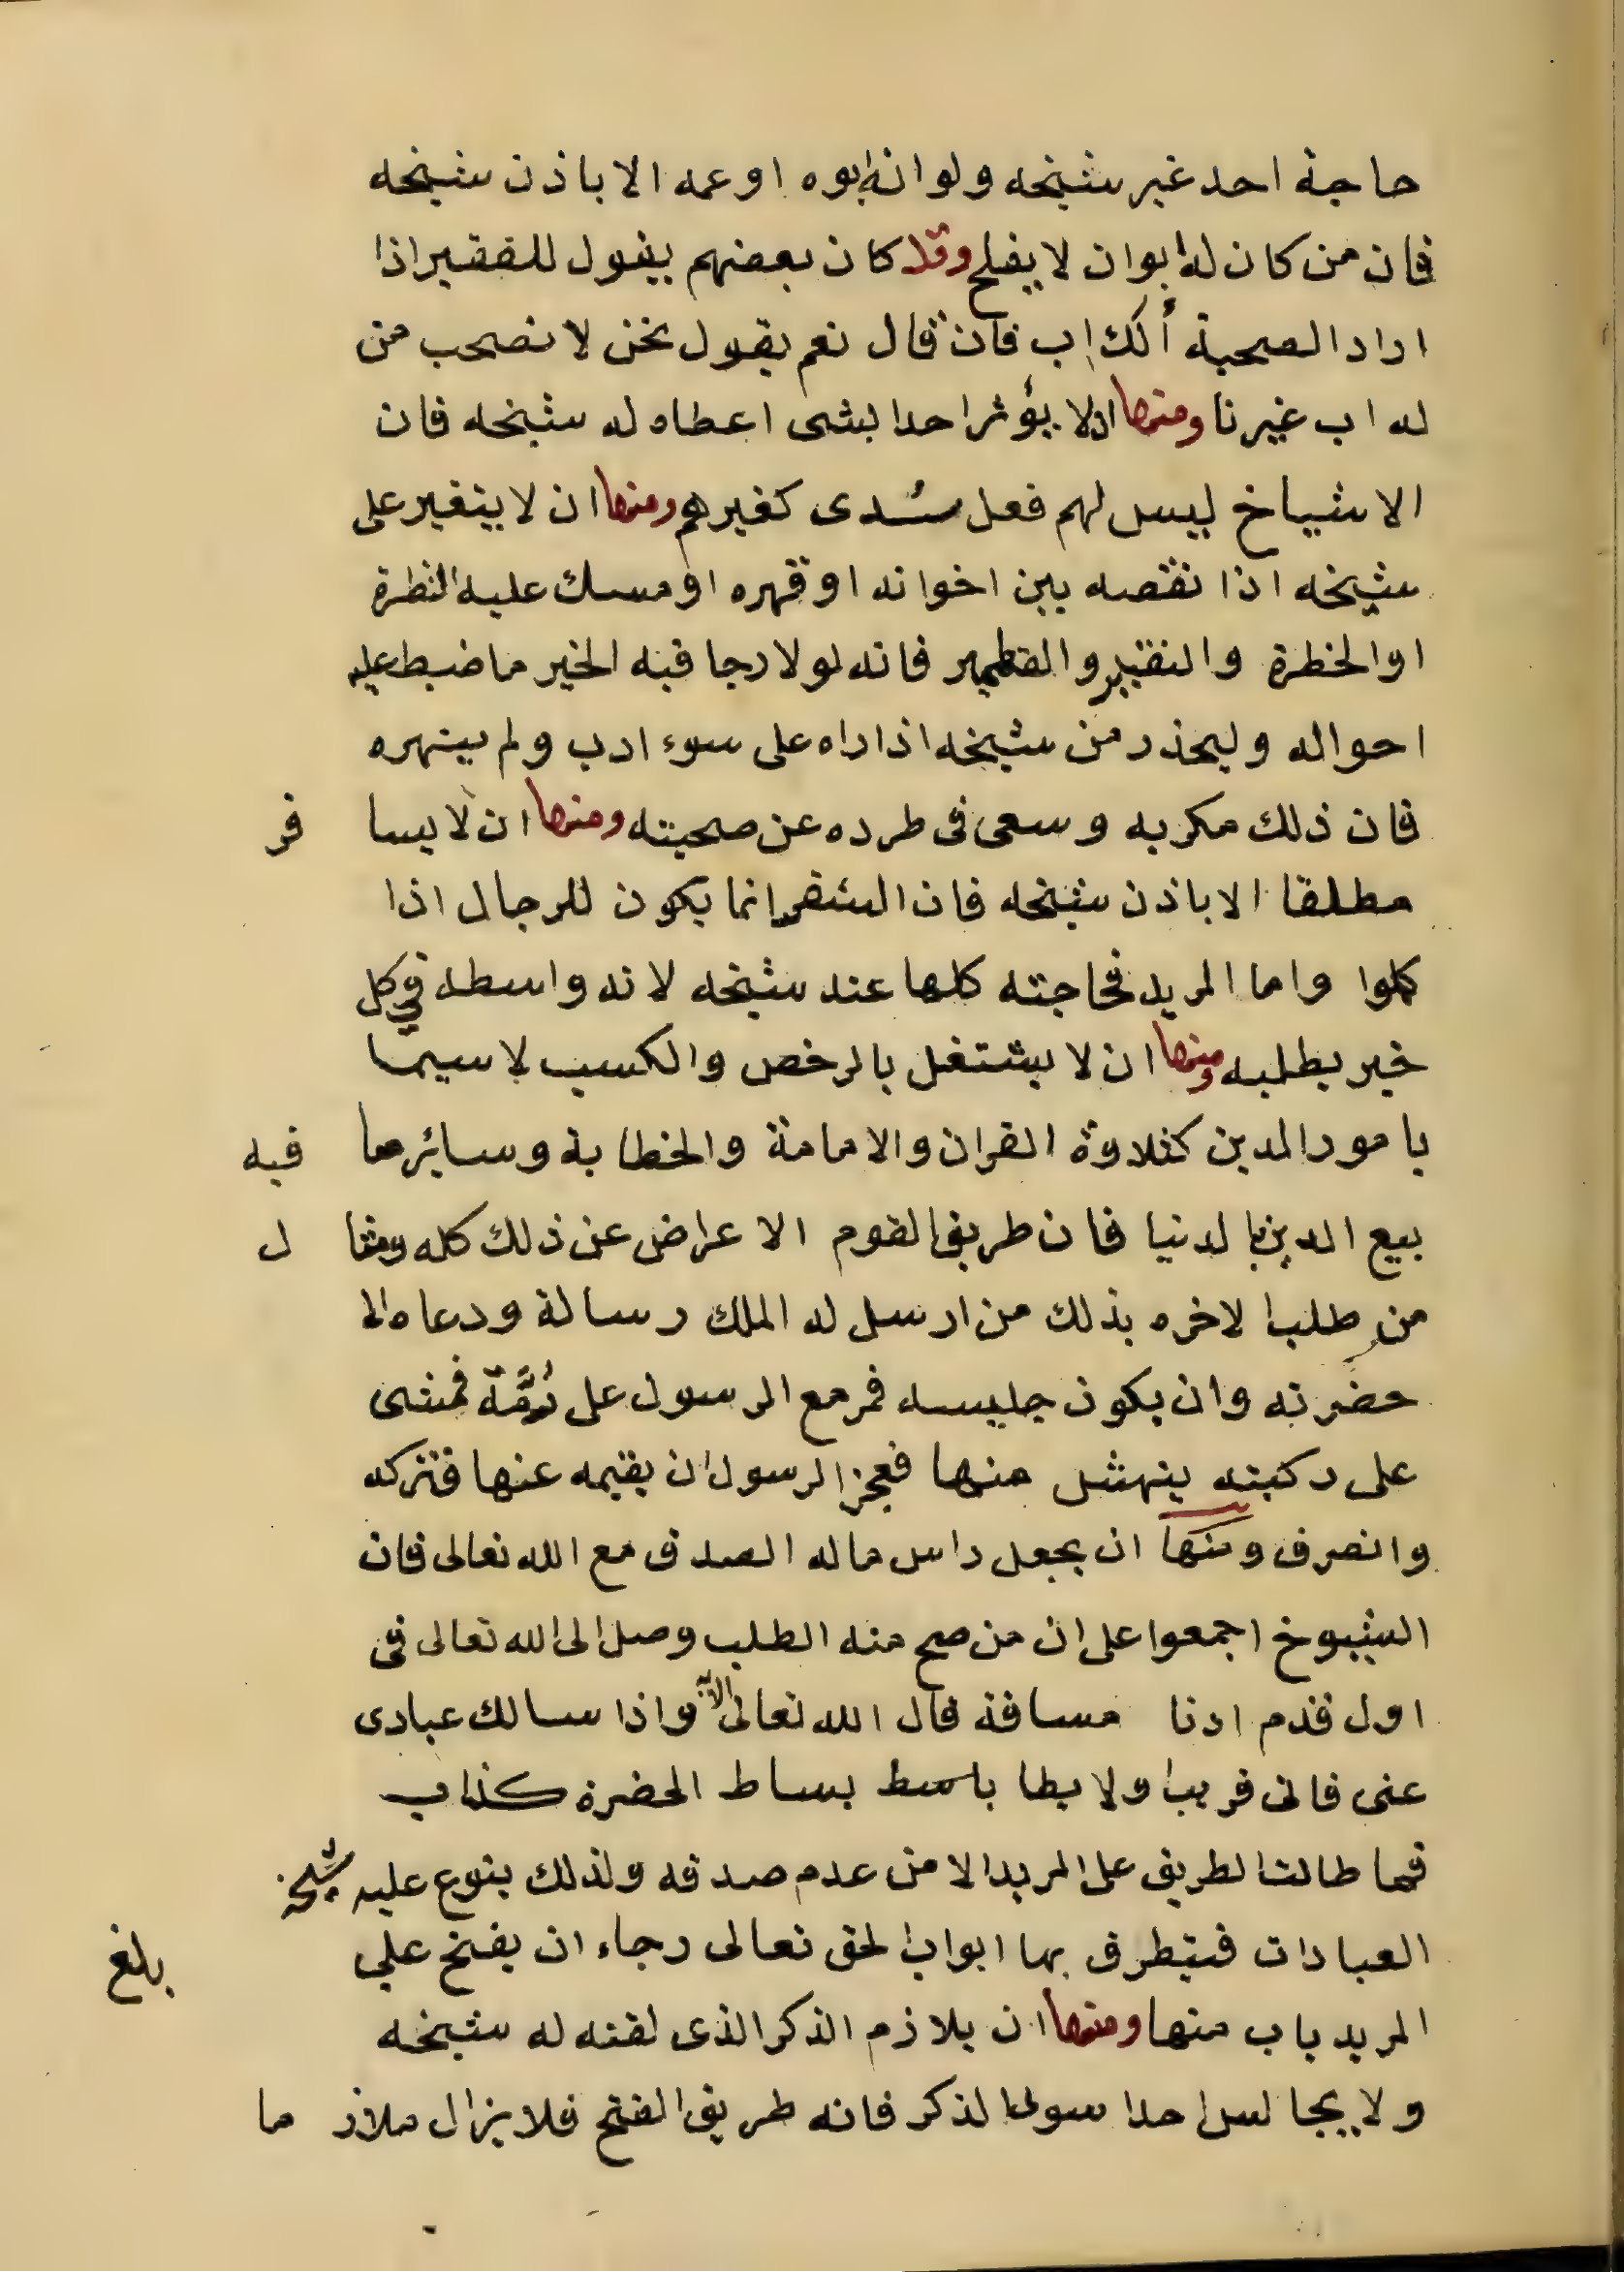 حاجة احد غير شيخه ولو انه ابوه او عمه الا باذن شيخه
فان من كان له ابوان لا يفلح وقد كان بعضهم يقول للفقير اذا
اراد الصحبة ألك اب فان قال نعم يقول نحن لا نصحب من
له اب غيرنا ومنها ان لا يؤثر احدا بشى اعطاه له شيخه فان
الاشياخ ليس لهم فعل سُدى كغيرهم ومنها ان لا يتغير على
شيخه اذا نقصه بين اخوانه او قهره او مسك عليه النظرة
او الخطرة والنقير والقطمير فانه لولا رجا فيه الخير ما ضبط عليه
احواله وليحذر من شيخه اذا راه على سوء ادب ولم ينهره
فان ذلك مكر به وسعى فى طرده عن صحبته ومنها ان لا يسا فر
مطلقا الا باذن شيخه فان السفر انما يكون للرجال اذا
كملوا واما المريد فحاجته كلها عند شيخه لانه واسطه في كل
خير يطلبه ومنها ان لا يشتغل بالرخص والكسب لا سيما
بامور الدين كتلاوة القران والامامة والخطابة وسائر ما فيه
بيع الدين بالدنيا فان طريق القوم الاعراض عن ذلك كله ومثا ل
من طلب الاخره بذلك من ارسل له الملك رسالة ودعاه الى
حضرته وان يكون جليسه فمر مع الرسول على رمّة فجثى
على ركبته ينهش منها فعجز الرسول ان يقيمه عنها فتركه
وانصرف ومنها ان يجعل راس ماله الصدق مع الله تعالى فان
الشيوخ اجمعوا على ان من صح منه الطلب وصل الى الله تعالى فى
اول قدم ادنا مسافة قال الله تعالى الآية واذا سالك عبادى
عنى فانى قريب ولا يطا باسط بساط الحضرة كذاب
فما طالت الطريق على المريد الا من عدم صدقه ولذلك ينوع عليه شيخه
العبادات فيتطرق بها ابواب الحق تعالى رجاء ان يفتح علي
بلغ
المريد باب منها ومنها ان يلازم الذكر الذى لقنه له شيخه
ولا يجالس احدا سوى الذكر فانه طريق الفتح فلا يزال ملاز ما